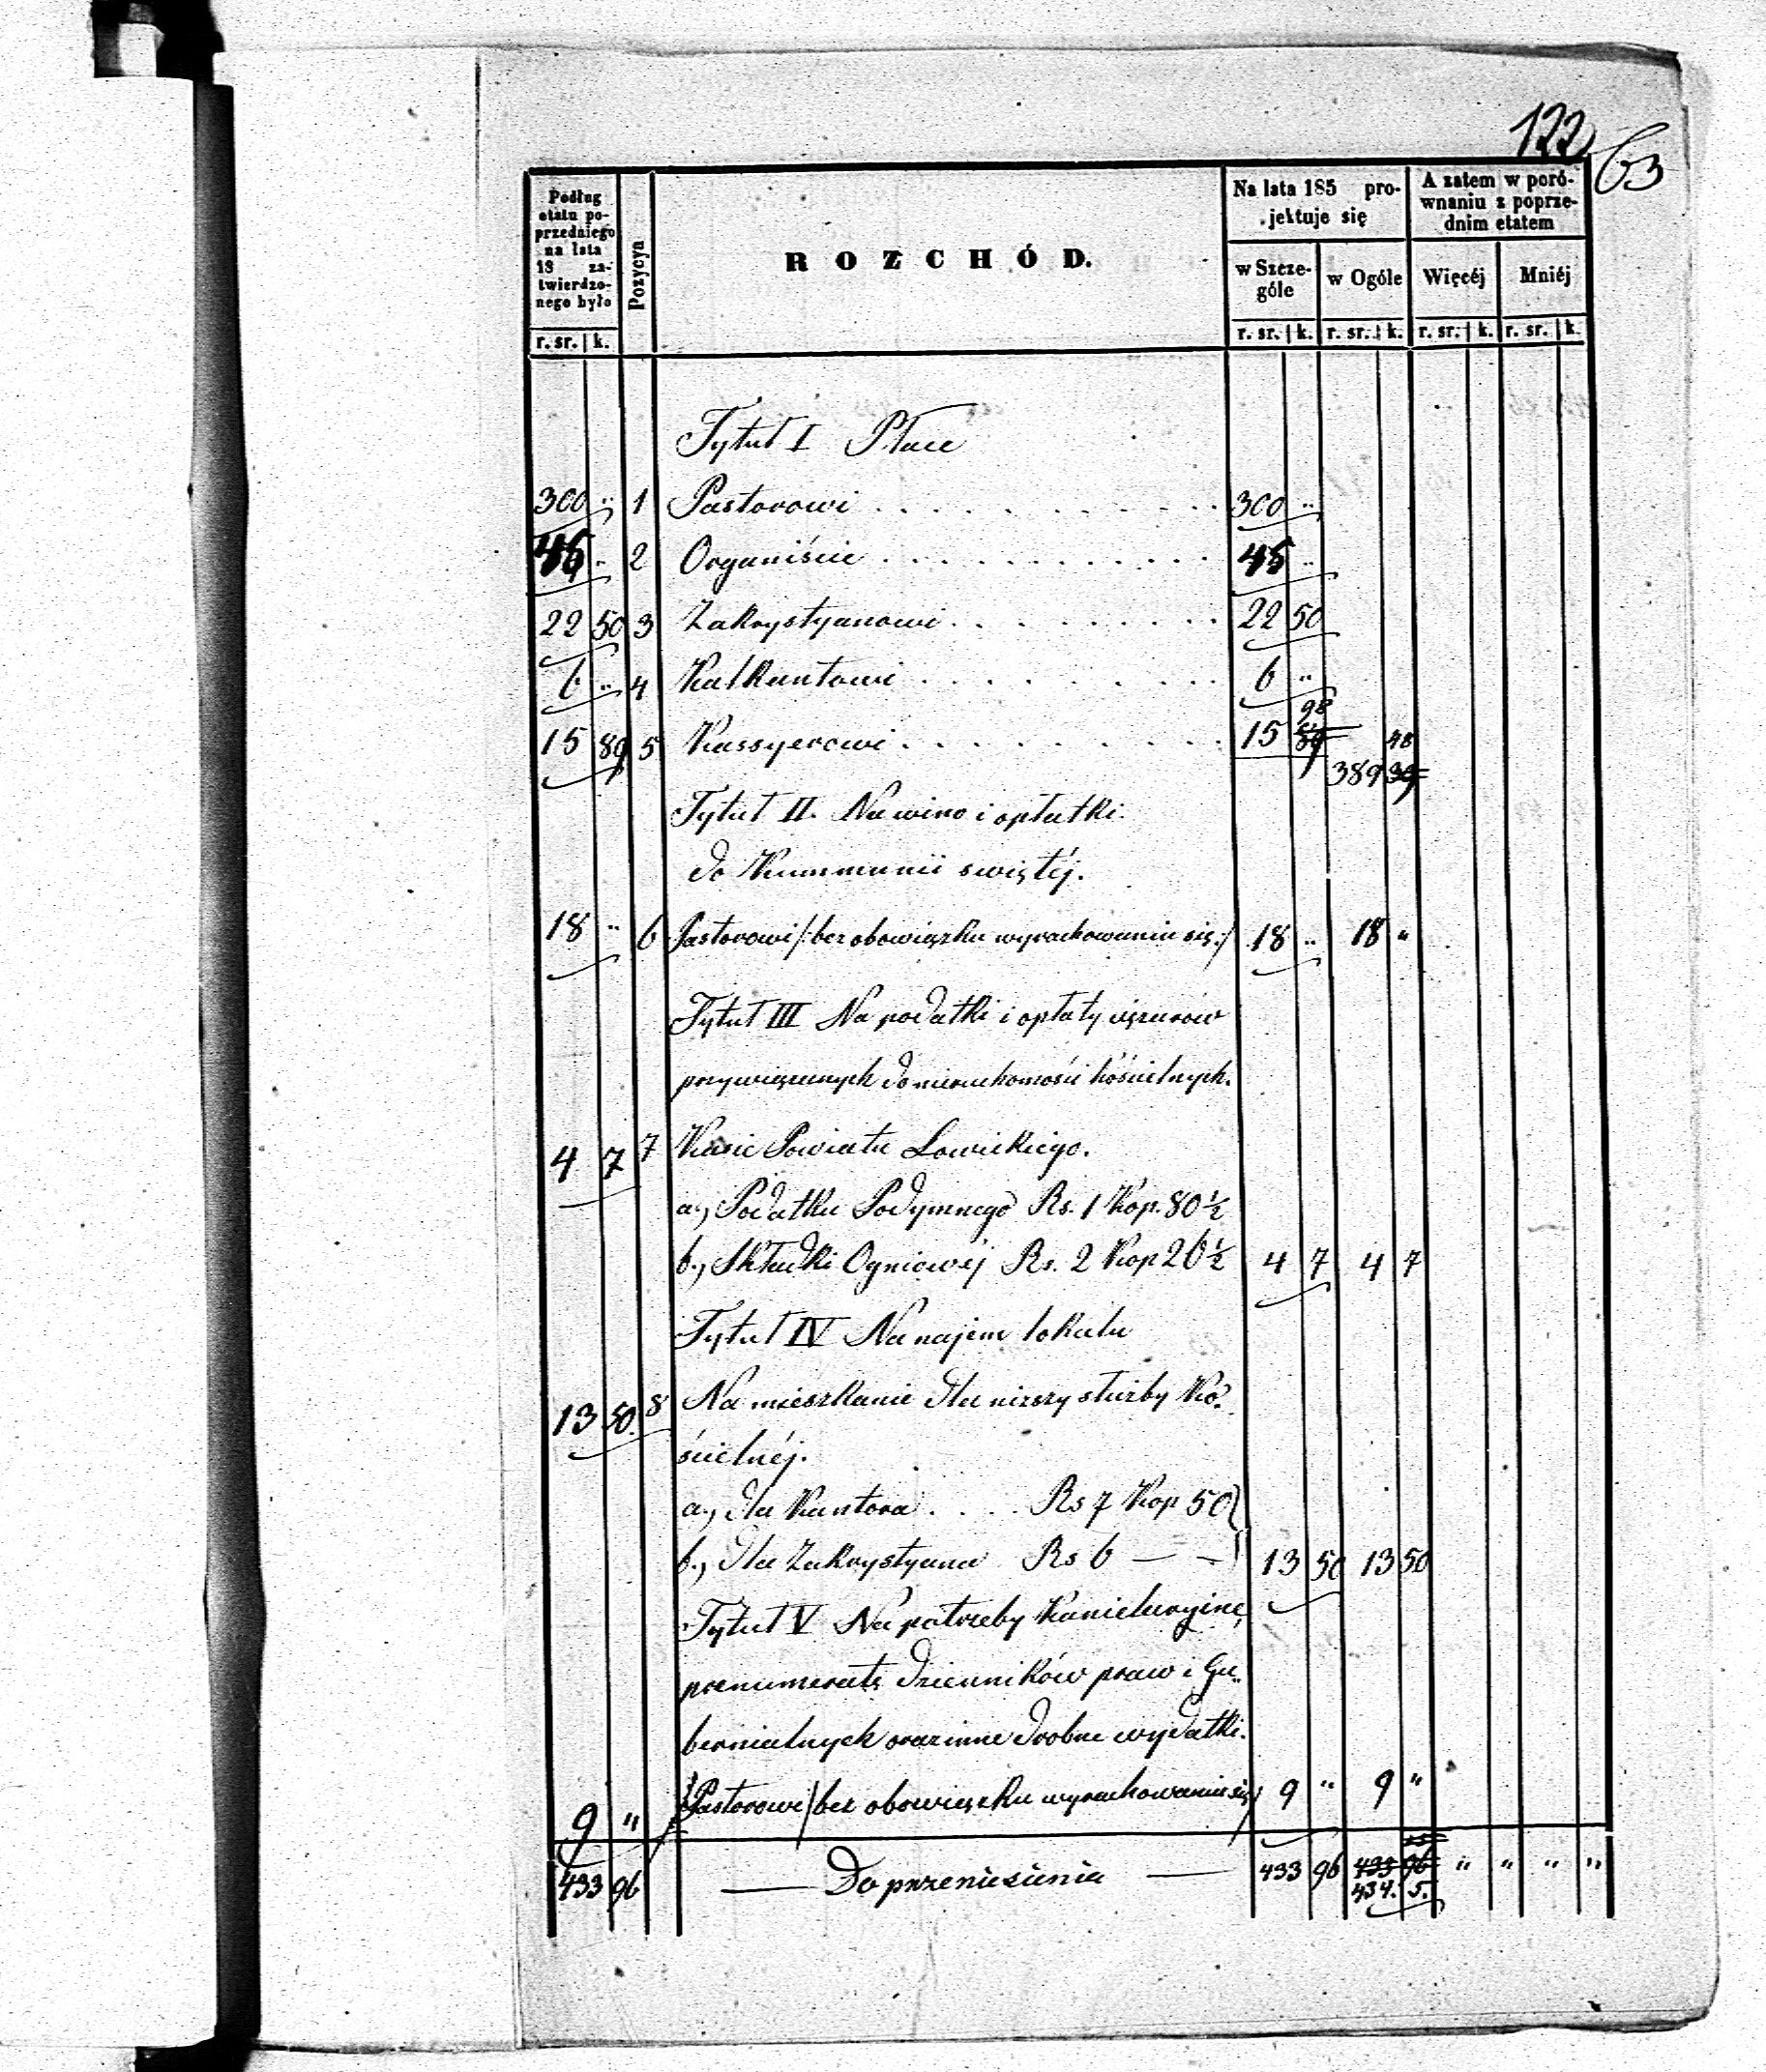 122
63
Podług etatu poprzedniego na lata 18 zatwierdzonego było
Pozycya
ROZCHÓD.
Na lata 185 projektuje się
A zatem w porównaniu z poprzednim etatem
w Szczególe
w Ogóle
Więcéj
Mniéj
r. sr. | k.
r. sr. | k. r. sr. | k. r. sr. | k. r. sr. | k.
Tytuł I Płace
300 .. 1 Pastorowi . . . . . . . . . . . 300 ..
45 .. 2 Organiście . . . . . . . . . . . 45 ..
22 50 3 Zakrystyanowi . . . . . . . . . 22 50
6 .. 4 Kalkantowi . . . . . . . . . 6 ..
98
15 89 5 Kassyerowi . . . . . . . . . 15 89
48
389 39
Tytuł II. Na wino i opłatki
do Kummunii swiętéj.
18 .. 6 Pastorowi /: bez obowiązku wyrachowania się :/ 18 .. 18 "
Tytuł III Na podatki i opłaty ciężarów
przywiązanych do nieruchomości kościelnych.
4 7 7 Kasie Powiatu Łowickiego.
a., Podatku Podymnego Rs. 1 Kop. 80 ½
b., Składki Ogniowéj Rs. 2 Kop 26 ½ 4 7 4 7
Tytuł IV Na najem lokalu
13 50. 8 Na mieszkanie dla nizszy służby Ko-
ścielnéj.
a., dla Kantora . . . . Rs 7 Kop 50
b., dla Zakrystyana Rs 6 — — 13 50 13 50
Tytuł V Na potrzeby Kancelaryine,
prenumeratę dzienników praw i Gu-
bernialnych oraz inne drobne wydatki.
9 " Pastorowi / bez obowiązku wyrachowania się / 9 " 9 "
433 96 — Do przeniesienia — 433 96 433 96 " " " "
434. 5.